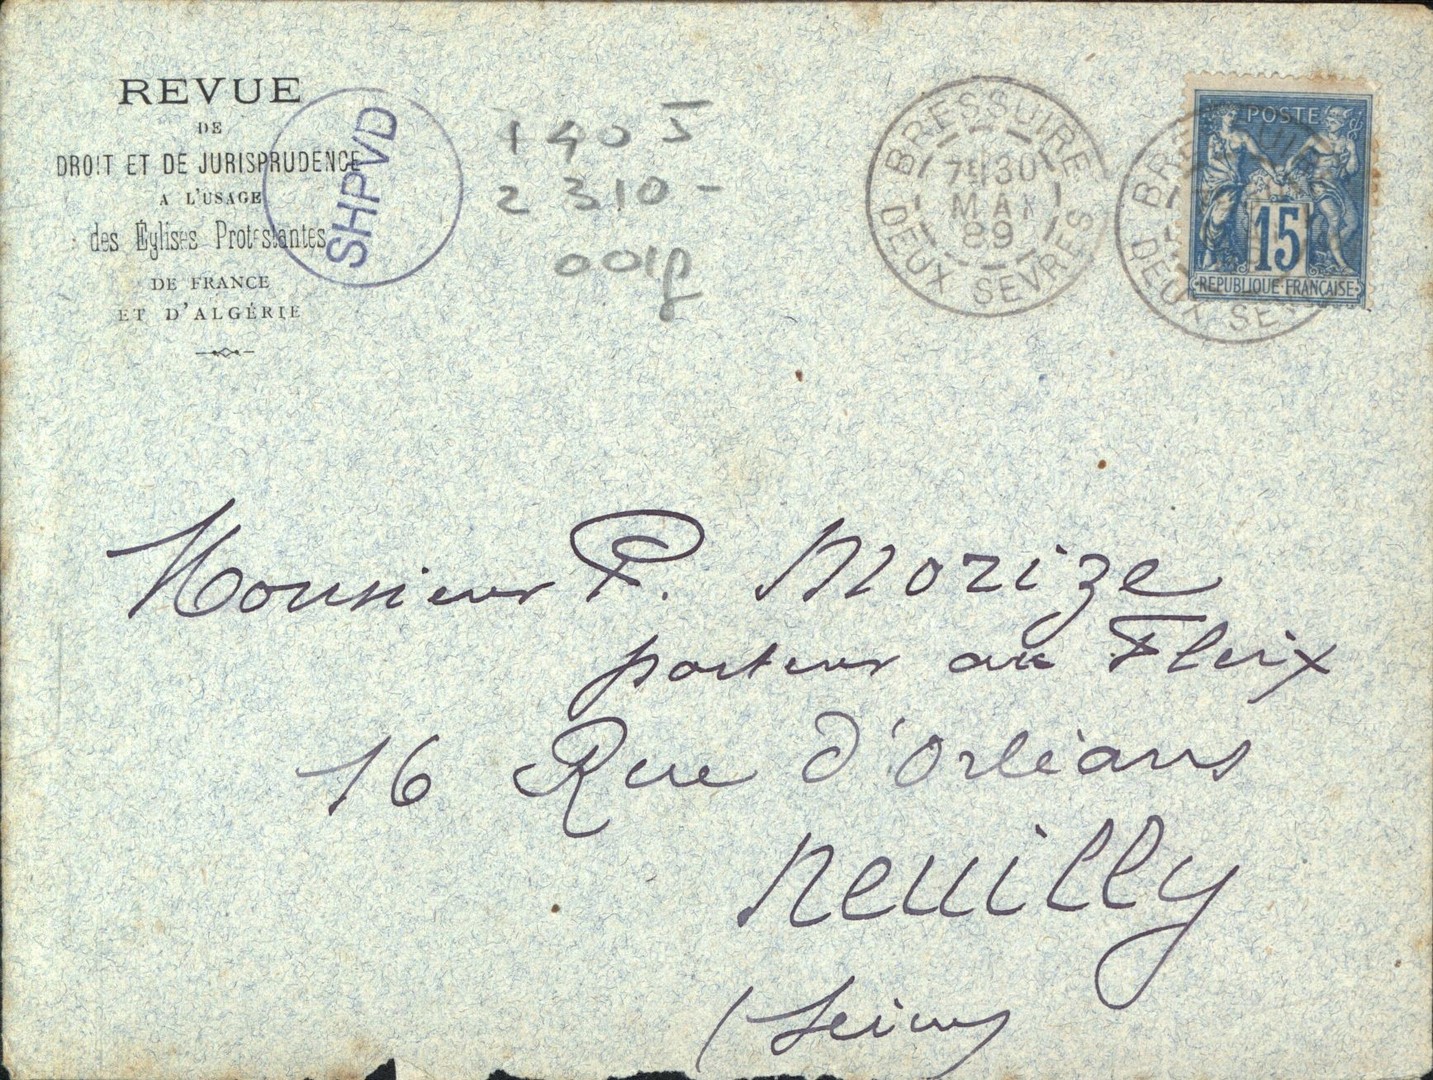 REVUE
DE
DROIT ET DE JURISPRUDENCE
A L'USAGE
des Églises Protestantes
DE FRANCE
ET D'ALGÉRIE
SHPVD
1 40 5
2 310 -
001f
BRESSUIRE
7E 30
MAI
89
DEUX SEVRES
POSTE
15
REPUBLIQUE FRANÇAISE
DEUX SEV
Monsieur P. Morize
pasteur au Fleix
16 Rue d'Orléans
Neuilly
(Seine)